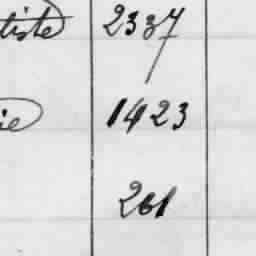 tiste 2337
ie 1423
261